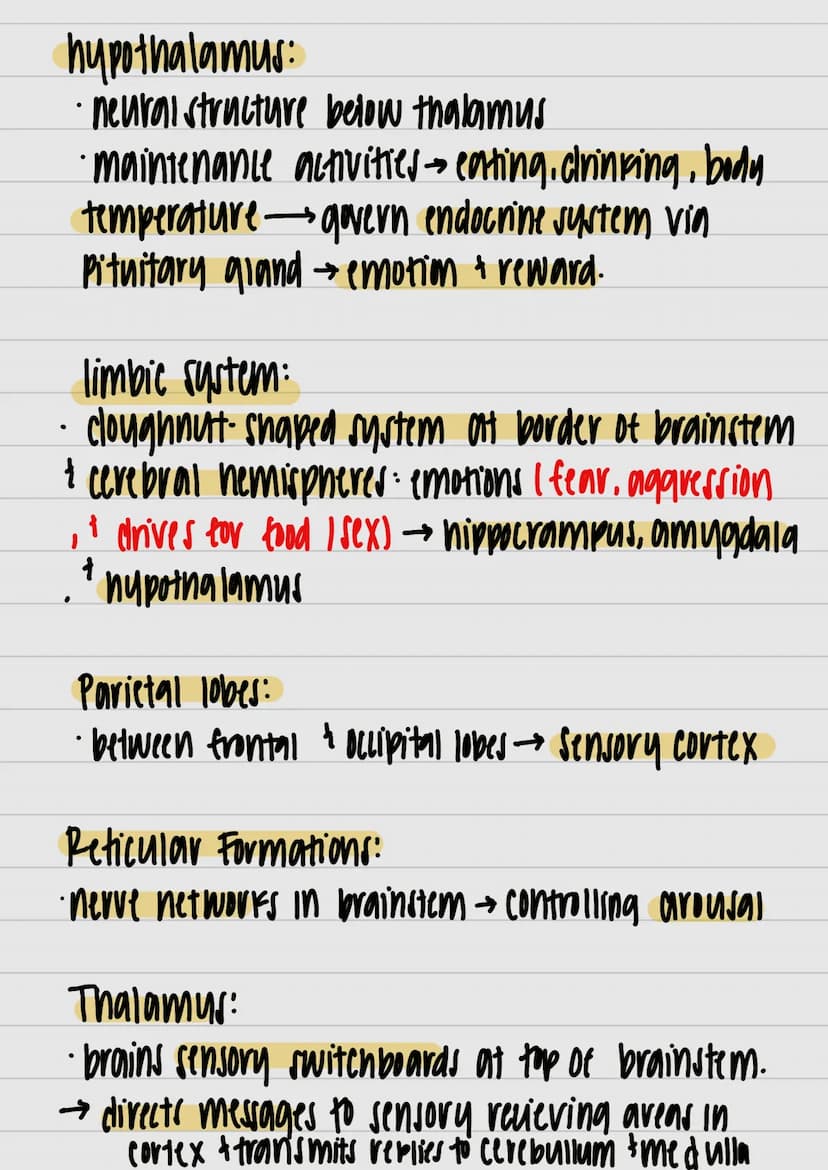 hypothalamus:
· neural structure below thalamus
· maintenance activities → eating, drinking, body
temperature → govern endocrine system via
pituitary gland → emotion & reward.
limbic system:
· doughnut-shaped system at border of brainstem
& cerebral hemispheres: emotions (fear, aggression
, & drives for food / sex) → hippocrampus, amygdala
. & hypothalamus
Parietal lobes:
· between frontal & occipital lobes → sensory cortex
Reticular Formations:
· nerve networks in brainstem → controlling arousal
Thalamus:
· brains sensory switchboards at top of brainstem.
→ directs messages to sensory recieving areas in
cortex & transmits replies to cerebullum & medulla